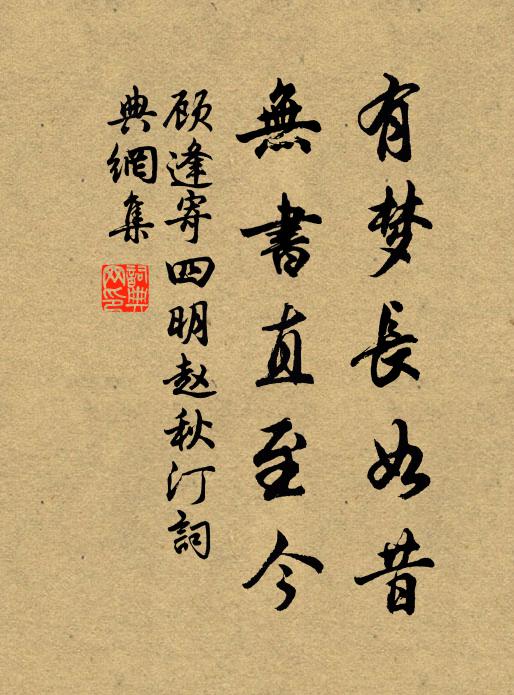 有梦長如昔
無書直至今
顾逢寄四明赵秋汀詞
典網集
詞典网印